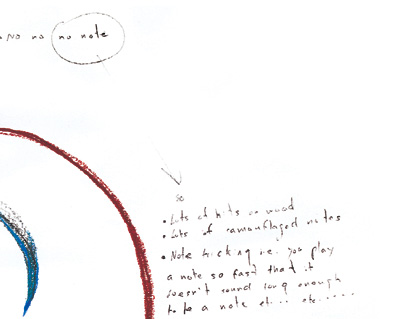 no no no note
so
• Lots of hits on wood
• Lots of camouflaged notes
• Note kicking i.e. you play
a note so fast that it
doesn't sound long enough
to be a note et... etc.....